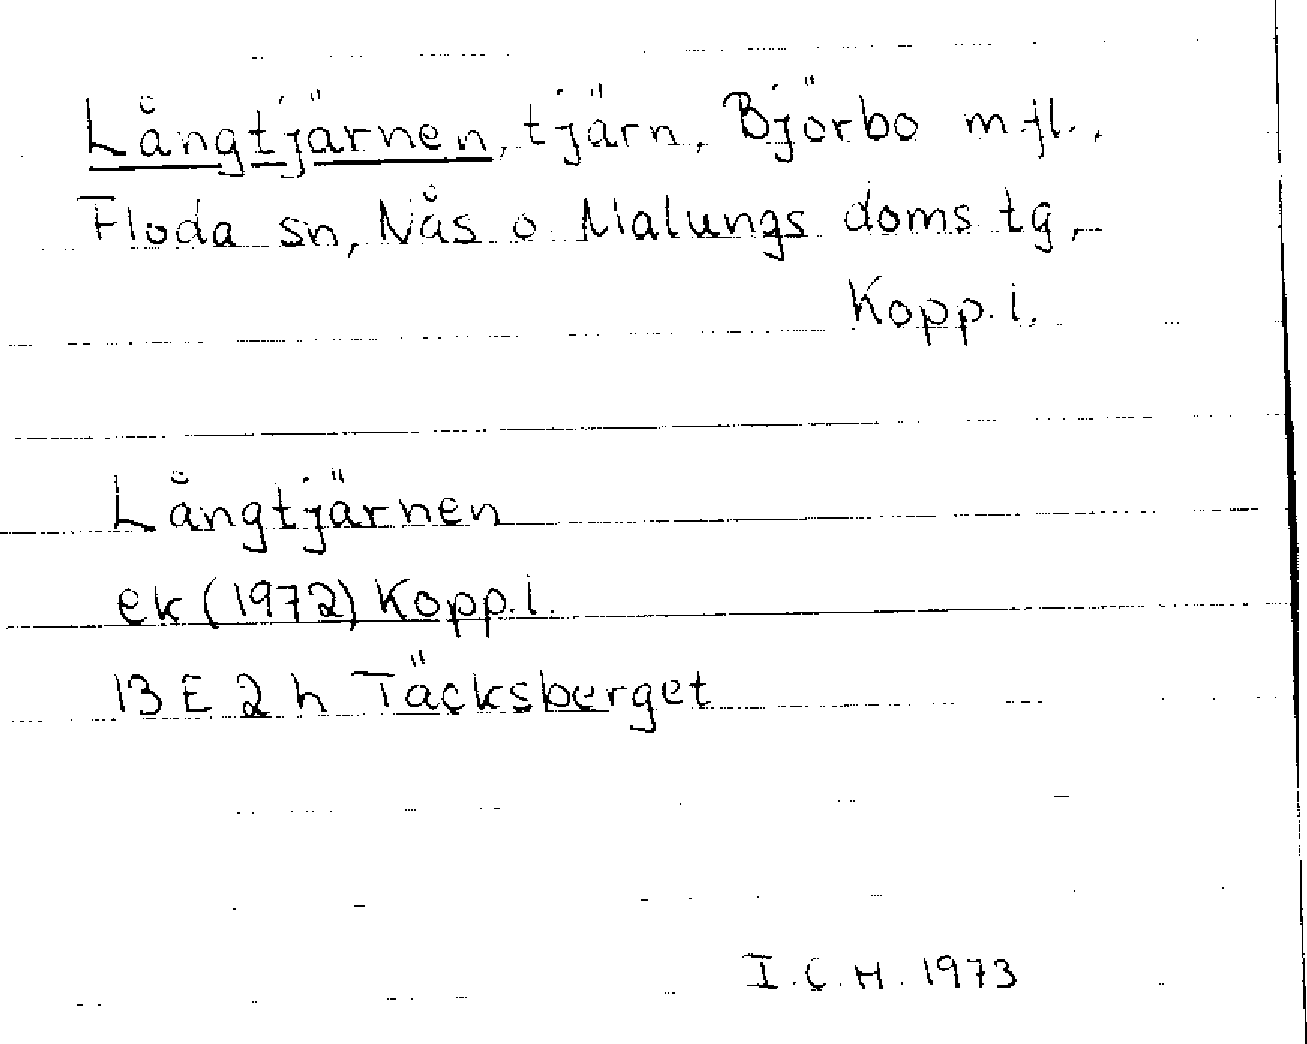 Långtjärnen, tjärn, Björbo m fl.,
Floda sn, Nås o Malungs doms tg,
Kopp. l.
Långtjärnen
ek (1972) Kopp. l.
13 E 2 h Täcksberget
I. C. H. 1973